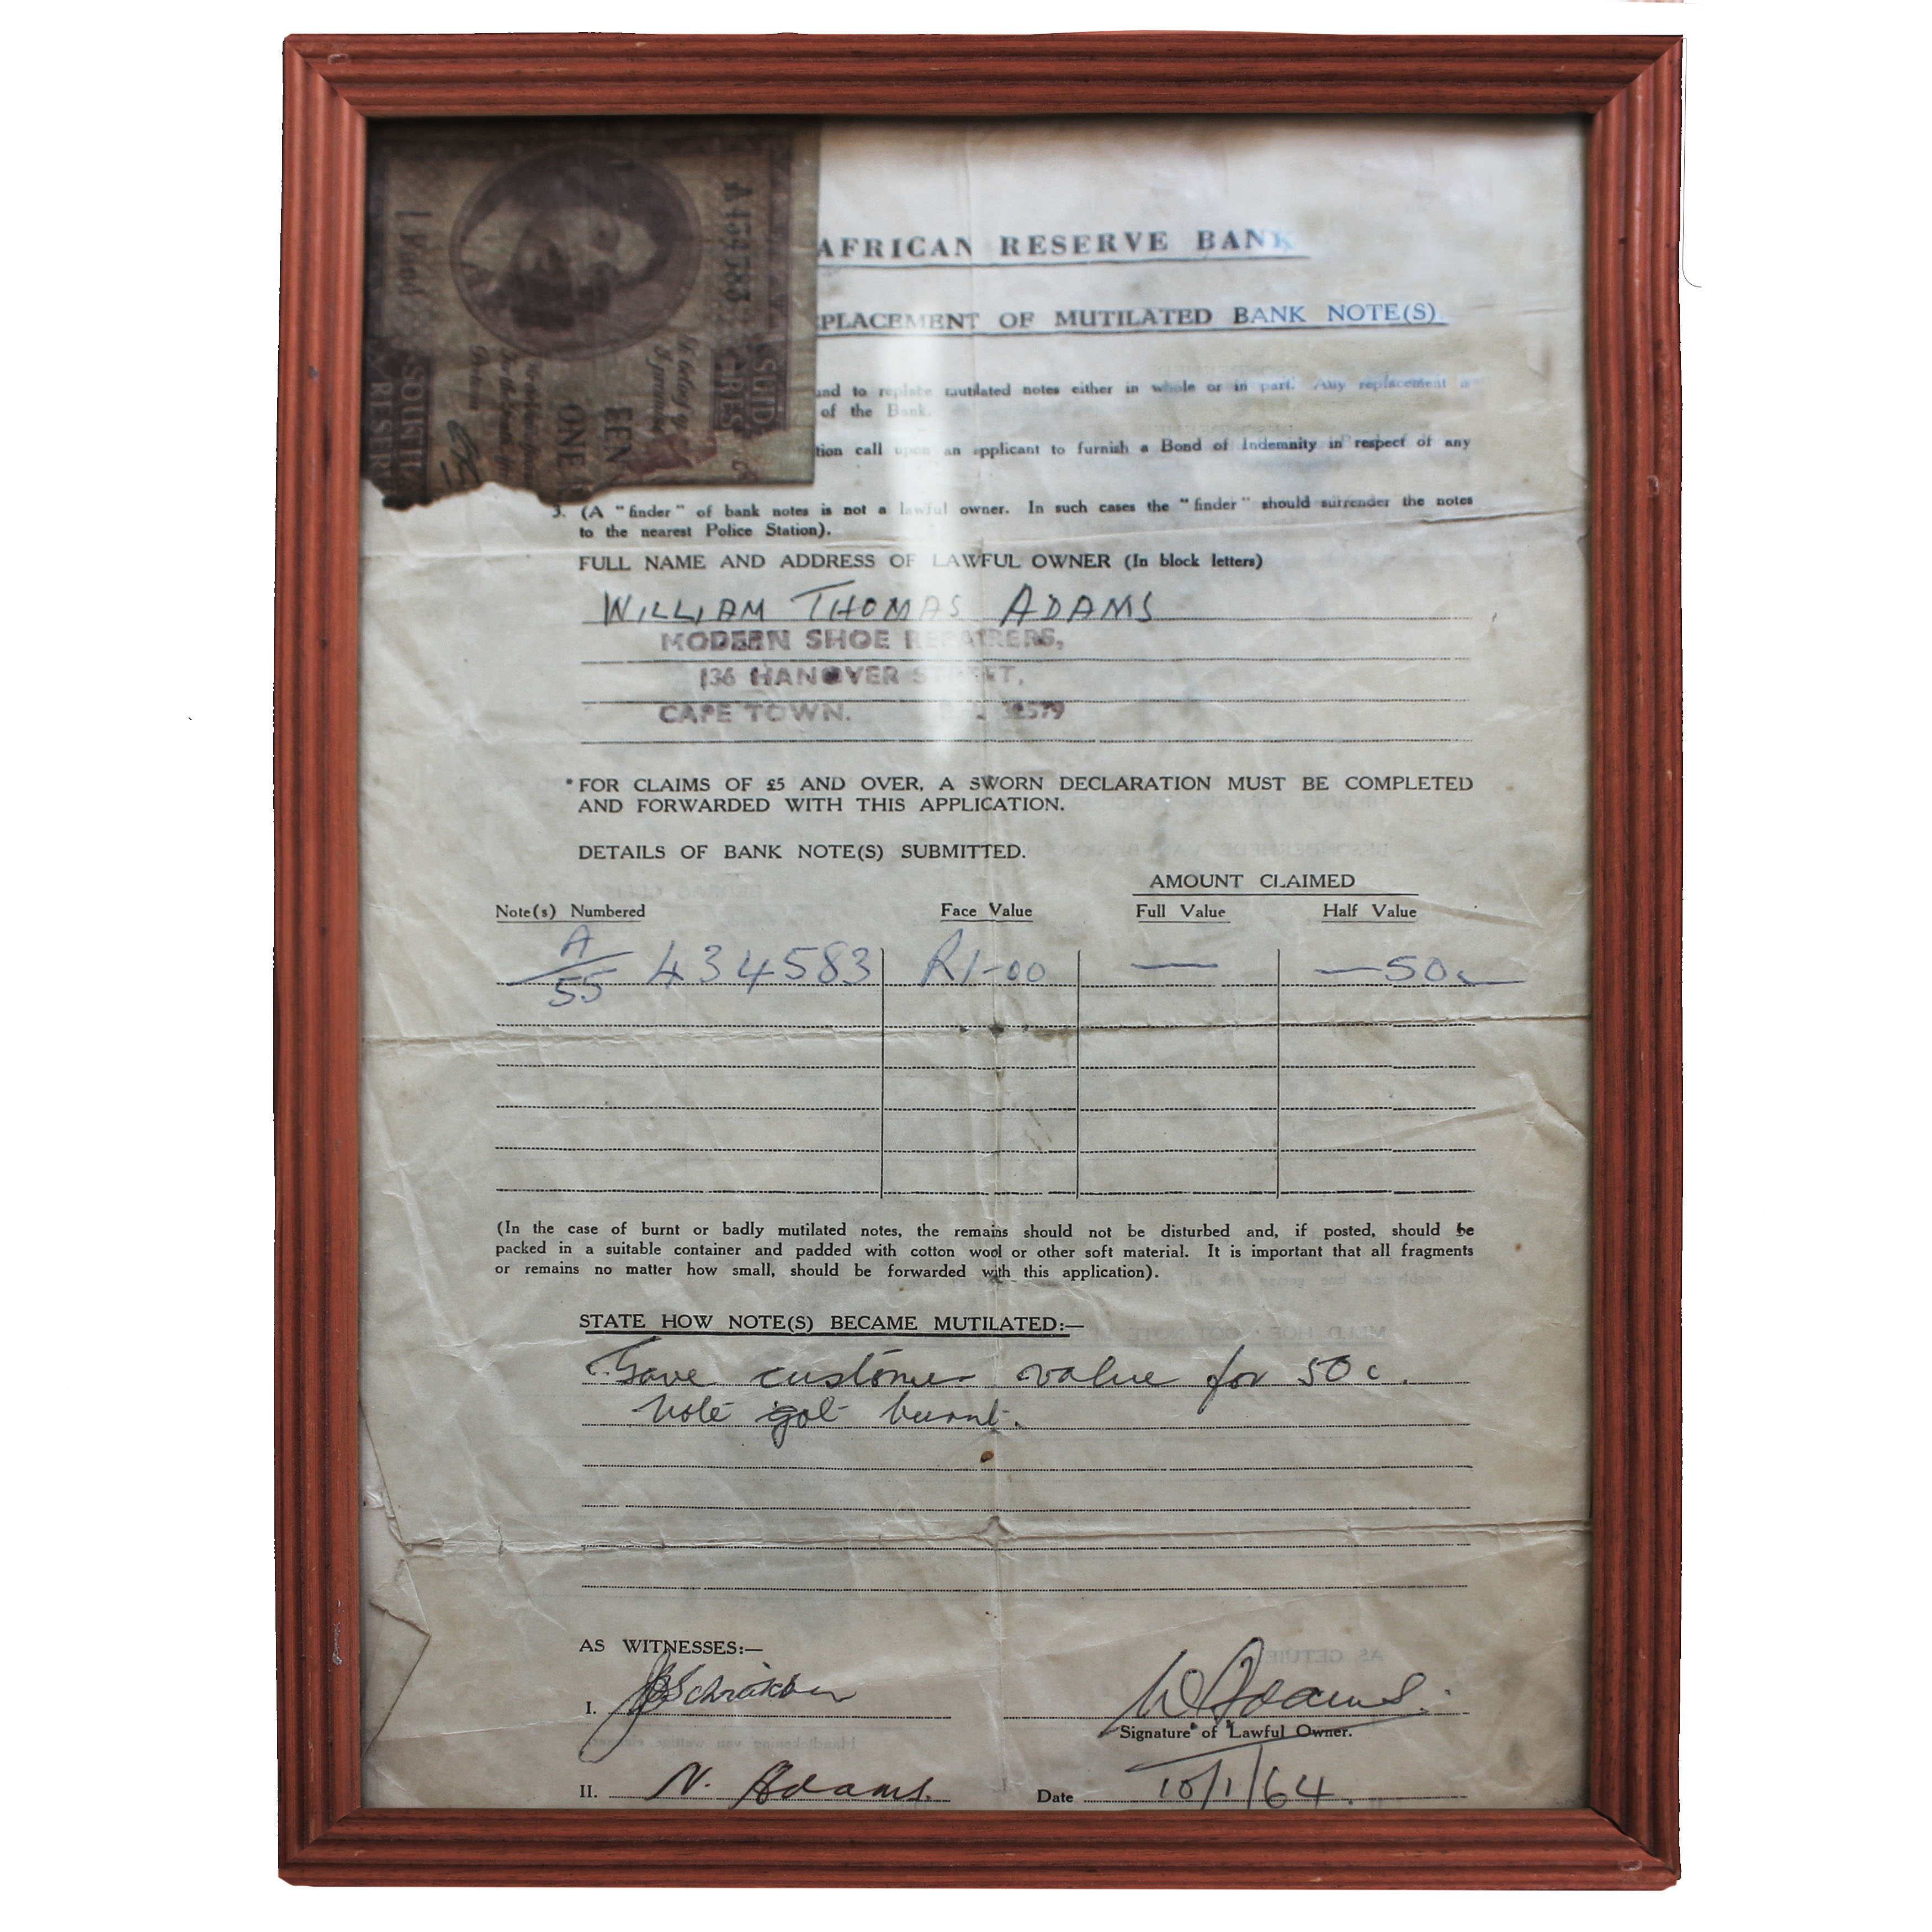 AFRICAN RESERVE BANK
PLACEMENT OF MUTILATED BANK NOTE(S).
und to replace mutilated notes either in whole or in part. Any replacement
of the Bank.
tion call upon an applicant to furnish a Bond of Indemnity in respect of any
3. (A "finder" of bank notes is not a lawful owner. In such cases the "finder" should surrender the notes
to the nearest Police Station).
FULL NAME AND ADDRESS OF LAWFUL OWNER (In block letters)
WILLIAM THOMAS ADAMS
MODERN SHOE REPAIRERS,
136 HANOVER STREET,
CAPE TOWN.
*FOR CLAIMS OF £5 AND OVER, A SWORN DECLARATION MUST BE COMPLETED
AND FORWARDED WITH THIS APPLICATION.
DETAILS OF BANK NOTE(S) SUBMITTED.
AMOUNT CLAIMED
Note(s) Numbered Face Value Full Value Half Value
A/55 434583 R1-00 — —50c
(In the case of burnt or badly mutilated notes, the remains should not be disturbed and, if posted, should be
packed in a suitable container and padded with cotton wool or other soft material. It is important that all fragments
or remains no matter how small, should be forwarded with this application).
STATE HOW NOTE(S) BECAME MUTILATED:—
Gave customer value for 50c.
Note got burnt.
AS WITNESSES:—
I.
W Adams.
Signature of Lawful Owner.
II. N. Adams.
Date 10/1/64.
SUID
EEN
ONE
SOUTH
RESER